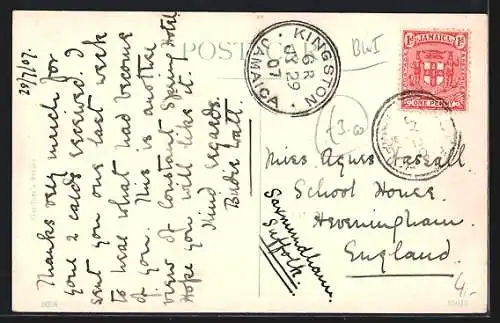 29/7/07.
Thanks very much for
your 2 cards received. I
sent you one last week
to hear what had become
of you. This is another
view of Constant Spring Hotel
Hope you will like it.
Kind regards.
POST CARD
KINGSTON
6 R
JY 29
07
JAMAICA
BWI
1D JAMAICA 1D
ONE PENNY
£3.00
Miss Agnes Hassall
School House
Heveningham
Saxmundham
Suffolk.
England
4-